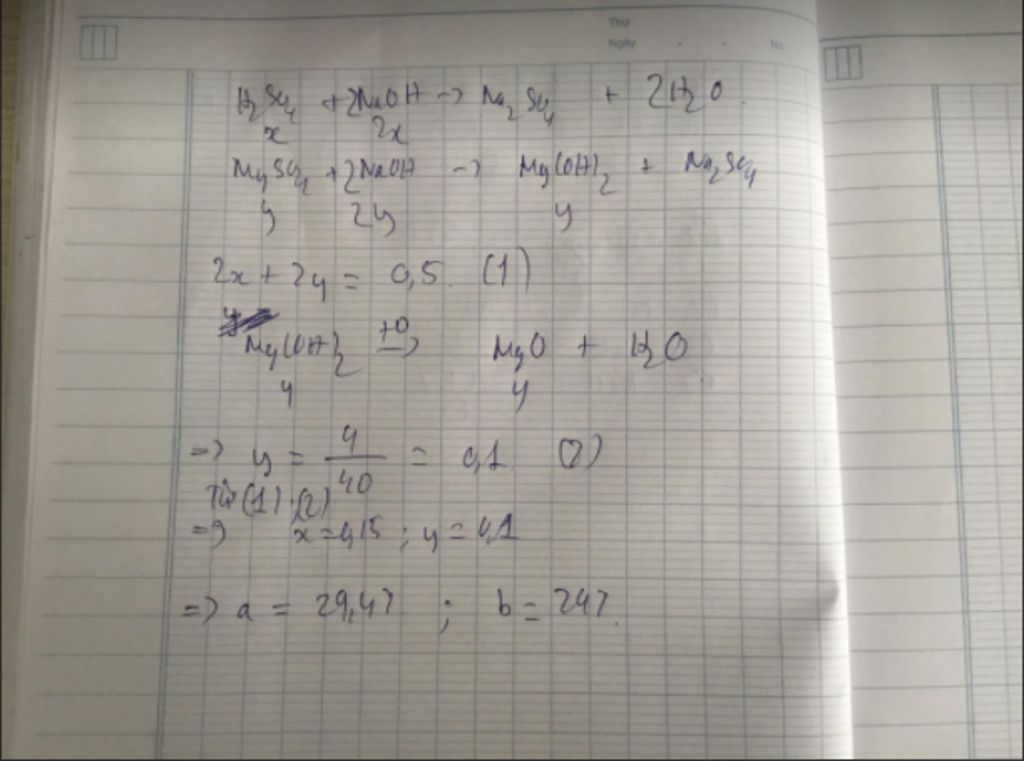 Thứ
Ngày . . No.
H₂SO₄ + 2NaOH -> Na₂SO₄ + 2H₂O.
x 2x
MgSO₄ + 2NaOH -> Mg(OH)₂ + Na₂SO₄
y 2y y
2x + 2y = 0,5. (1)
Mg(OH)₂ -> MgO + H₂O
y y
=> y = 4/40 = 0,1 (2)
Từ (1), (2)
=> x = 0,15 ; y = 0,1
=> a = 29,4% ; b = 24%.